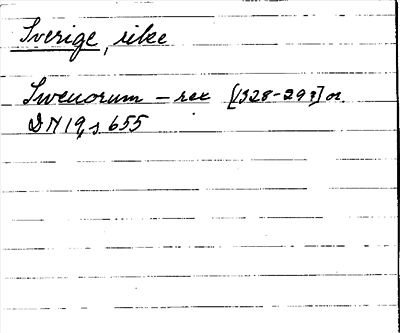 Sverige, rike
Swenorum – rex [1328-29?] or.
DN 19, s. 655